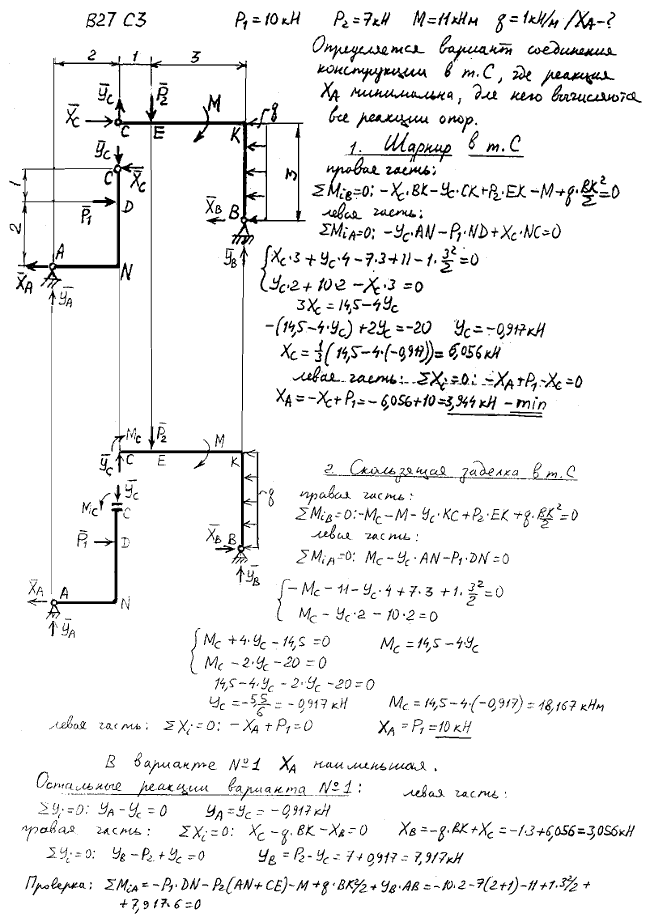 B27 C3 P₁=10кН P₂=7кН M=11кНм q=1кН/м /X_A-?
Определяется вариант соединения
конструкции в т.С, где реакция
X_A минимальна, для него вычисляются
все реакции опор.
2 1 3
Y̅_C P̅₂ M q
X̅_C C E K
Y̅_C
C X̅_C
1 P̅₁ D 3
2 X̅_B B
A Y̅_B
X̅_A N
Y̅_A
1. Шарнир в т.С
правая часть:
ΣM_iB=0: -X_C·BK-Y_C·CK+P₂·EK-M+q·BK²/2=0
левая часть:
ΣM_iA=0: -Y_C·AN-P₁·ND+X_C·NC=0
{X_C·3+Y_C·4-7·3+11-1·3²/2=0
Y_C·2+10·2-X_C·3=0
3X_C=14,5-4Y_C
-(14,5-4·Y_C)+2Y_C=-20 Y_C=-0,917кН
X_C=1/3(14,5-4·(-0,917))=6,056кН
левая часть: ΣX_i=0: -X_A+P₁-X_C=0
X_A=-X_C+P₁=-6,056+10=3,944кН-min
M_C P̅₂ M
Y̅_C C E K
Y̅_C
M_C C q
P̅₁ D X̅_B B
X̅_A A N Y̅_B
Y̅_A
2. Скользящая заделка в т.С
правая часть:
ΣM_iB=0:-M_C-M-Y_C·KC+P₂·EK+q·BK²/2=0
левая часть:
ΣM_iA=0: M_C-Y_C·AN-P₁·DN=0
{-M_C-11-Y_C·4+7·3+1·3²/2=0
M_C-Y_C·2-10·2=0
{M_C+4·Y_C-14,5=0 M_C=14,5-4Y_C
M_C-2·Y_C-20=0
14,5-4·Y_C-2·Y_C-20=0
Y_C=-5,5/6=-0,917кН M_C=14,5-4·(-0,917)=18,167кНм
левая часть: ΣX_i=0: -X_A+P₁=0 X_A=P₁=10кН
В варианте №1 X_A наименьшая.
Остальные реакции варианта №1: левая часть:
ΣY_i=0: Y_A-Y_C=0 Y_A=Y_C=-0,917кН
правая часть: ΣX_i=0: X_C-q·BK-X_B=0 X_B=-q·BK+X_C=-1·3+6,056=3,056кН
ΣY_i=0: Y_B-P₂+Y_C=0 Y_B=P₂-Y_C=7+0,917=7,917кН
Проверка: ΣM_iA=-P₁·DN-P₂(AN+CE)-M+q·BK²/2+Y_B·AB=-10·2-7(2+1)-11+1·3²/2+
+7,917·6=0